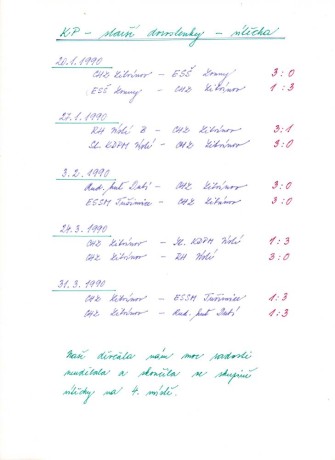 KP - starší dorostenky - útěcha
20.1.1990
CHZ Litvínov - ESŠ Louny 3:0
ESŠ Louny - CHZ Litvínov 1:3
27.1.1990
RH Voši B - CHZ Litvínov 3:1
Sl. KDPM Voši - CHZ Litvínov 3:
3.2.1990
Rud. prů - CHZ Litvínov 3:0
ESSM Tušimice - CHZ Litvínov 3:0
24.3.1990
CHZ Litvínov - Sl. KDPM Voši 1:3
CHZ Litvínov - RH Voši 3:0
31.3.1990
CHZ Litvínov - ESSM Tušimice 1:3
CHZ Litvínov - Rud. prů 1:3
Naše děvčata nám moc radosti
neudělala a skončila ve skupině
útěchy na 4. místě.